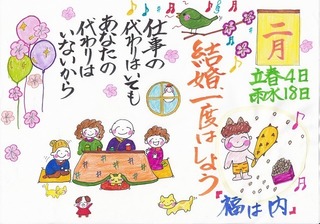 二月
立春4日
雨水18日
結婚一度はしよう
仕事の
代わりはいても
あなたの
代わりは
いないから
『福は内』